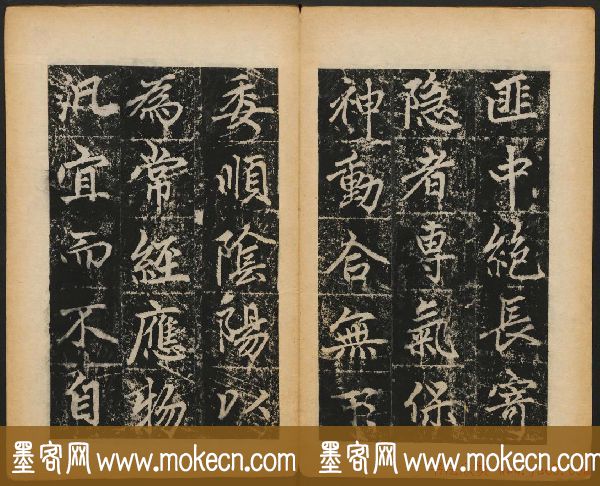 匪中絕長寄
隐者專氣保
神動合無
委順陰陽以
為常經應物
宜而不自
墨客网 www.mokecn.com 墨客网 www.mokecn.com